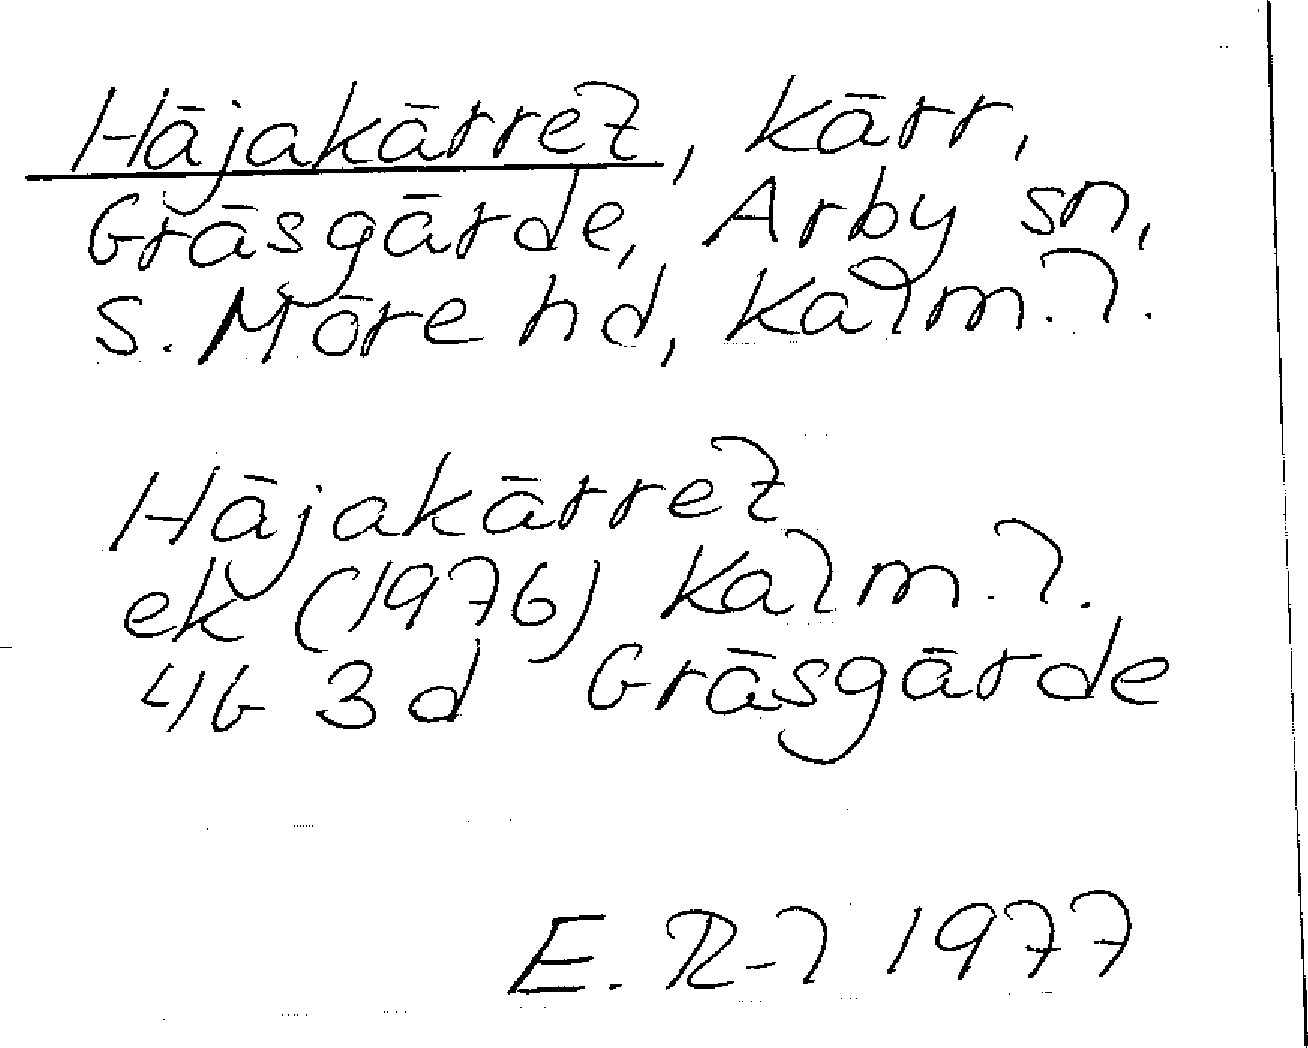 Häjakärret, kärr,
Gräsgärde, Arby sn,
S. Möre hd, Kalm. l.
Häjakärret
ek (1976) Kalm. l.
4G 3d Gräsgärde
E. R-l 1977